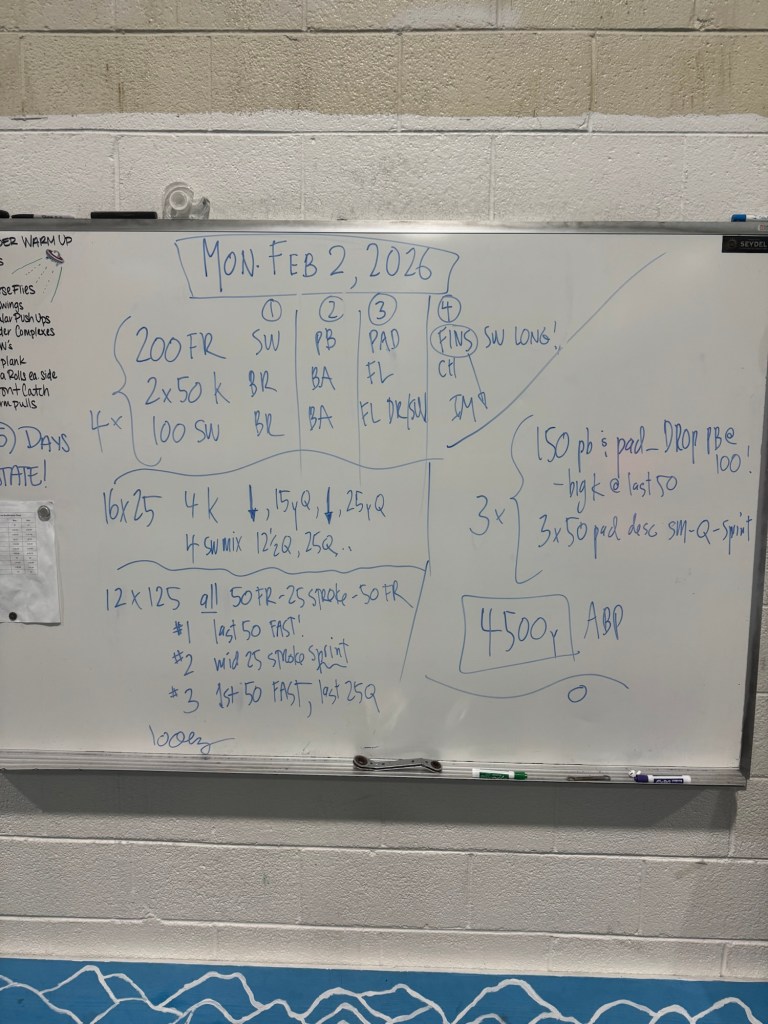 DER WARM UP
MON. FEB 2, 2026
SEYDEL
se Flies
wings
lar Push Ups
der Complexes
W's
plank
a Rolls ea. side
ont Catch
m pulls
5) DAYS
TATE!
① ② ③ ④
4x
200 FR SW PB PAD FINS SW LONG!
2x50 K BR BA FL CH
100 SW BR BA FL DR/SW IM
16x25 4 K ↓, 15y Q, ↓, 25y Q
4 SW MIX 12½Q, 25Q..
12 x 125 all 50 FR-25 STROKE-50 FR
#1 last 50 FAST!
#2 mid 25 stroke sprint
#3 1st 50 FAST, last 25Q
100ez
3x
150 pb & pad_DROP PB@
100!
-big k @ last 50
3x50 pad desc sm-Q-sprint
4500y ABP